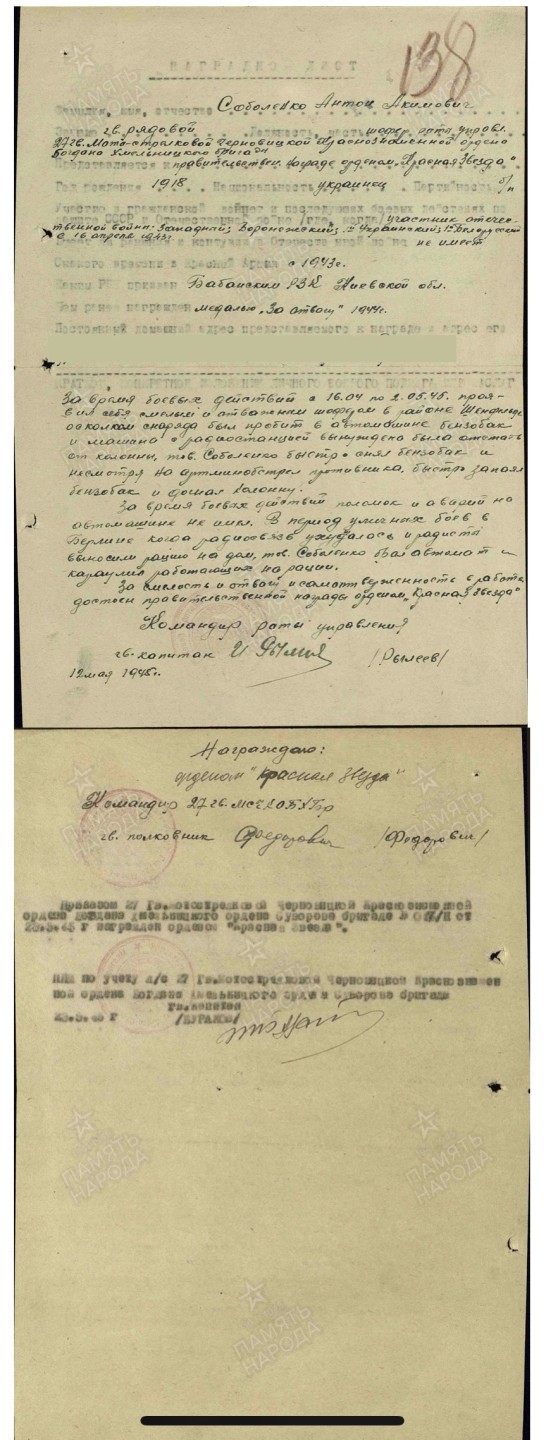 НАГРАДНОЙ ЛИСТ
138
Фамилия, имя, отчество Соболенко Антон Акимович
Звание гв. рядовой. Должность, часть шофер роты управл.
27 гв. Мото-стрелковой Черновицкой Краснознаменной ордена
Богдана Хмельницкого бригады
Представляется к правительствен. награде орденом „Красная Звезда"
Год рождения 1918. Национальность украинец. Партийность б/п
Участие в гражданской войне и последующих боевых действиях по
защите СССР и Отечественной войне /где, когда/ участник отече-
ственной войны: Западный; Воронежский; I Украинский; I Белорусский
с 16 апреля 1943г.
не имеет
С какого времени в Красной Армии с 1943г.
Каким РВК призван Бабанским РВК Киевской обл.
Чем ранее награжден медалью „За отвагу" 1944г.
Постоянный домашний адрес представляемого к награде и адрес его
КРАТКОЕ, КОНКРЕТНОЕ ИЗЛОЖЕНИЕ ЛИЧНОГО БОЕВОГО ПОДВИГА ИЛИ ЗАСЛУГ
За время боевых действий с 16.04 по 2.05.45. проя-
вил себя смелым и отважным шофером в районе
осколком снаряда был пробит в автомашине бензобак
и машина с радиостанцией вынуждена была отстать
от колонны, тов. Соболенко быстро снял бензобак и
несмотря на артминобстрел противника, быстро запаял
бензобак и догнал колонну.
За время боевых действий поломок и аварий на
автомашине не имел. В период уличных боев в
Берлине когда радиосвязь ухудшалась и радисты
выносили рацию на дом, тов. Соболенко брал автомат и
караулил работающих на рации.
За смелость и отвагу и самоотверженность в работе
достоин правительственной награды орденом „Красная Звезда"
Командир роты управления
гв. капитан /Рылеев/
12 мая 1945г.
Награждаю:
орденом "Красная Звезда"
Командир 27 гв. МСЧКОБХБр
гв. полковник Федорович /Федорович/
Приказом 27 Гв.Мотострелковой Черновицкой Краснознаменной
ордена Богдана Хмельницкого ордена Суворова бригаде
23.5.45 г награжден орденом "Красная Звезда".
ПНШ по учету л/с 27 Гв.Мотострелковой Черновицкой Краснознамен
ной ордена Богдана Хмельницкого ордена Суворова бригады
гв.капитан
23.5.45 г
ПАМЯТЬ НАРОДА